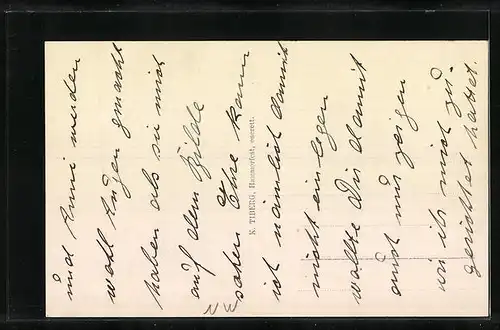 und Anni werden
wohl Augen gemacht
haben als sie mich
auf dem Bilde
sahen Ehre kann
ich nämlich damit
nicht einlegen
wollte Dir damit
auch nur zeigen
wie ihr mich zu-
gerichtet hattet.
K. TIBERG, Hammerfest, eneret.